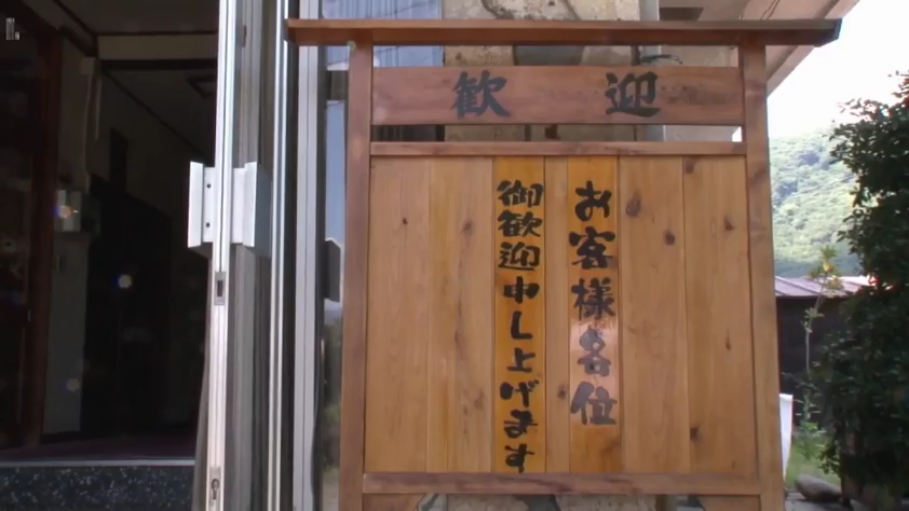 歓迎
お客様各位
御歓迎申し上げます